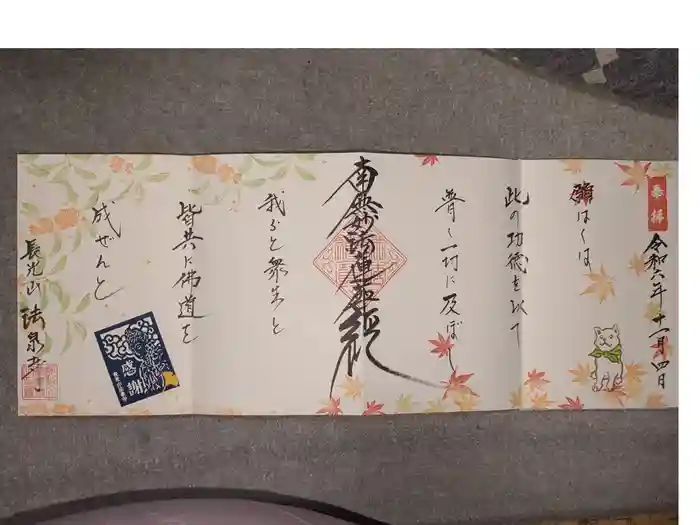 奉拝
令和六年十一月四日
願はくは
此の功徳を以て
普く一切に及ぼし
南無妙法蓮華経
我らと衆生と
皆共に佛道を
成ぜんと
感謝
長光山 法泉寺